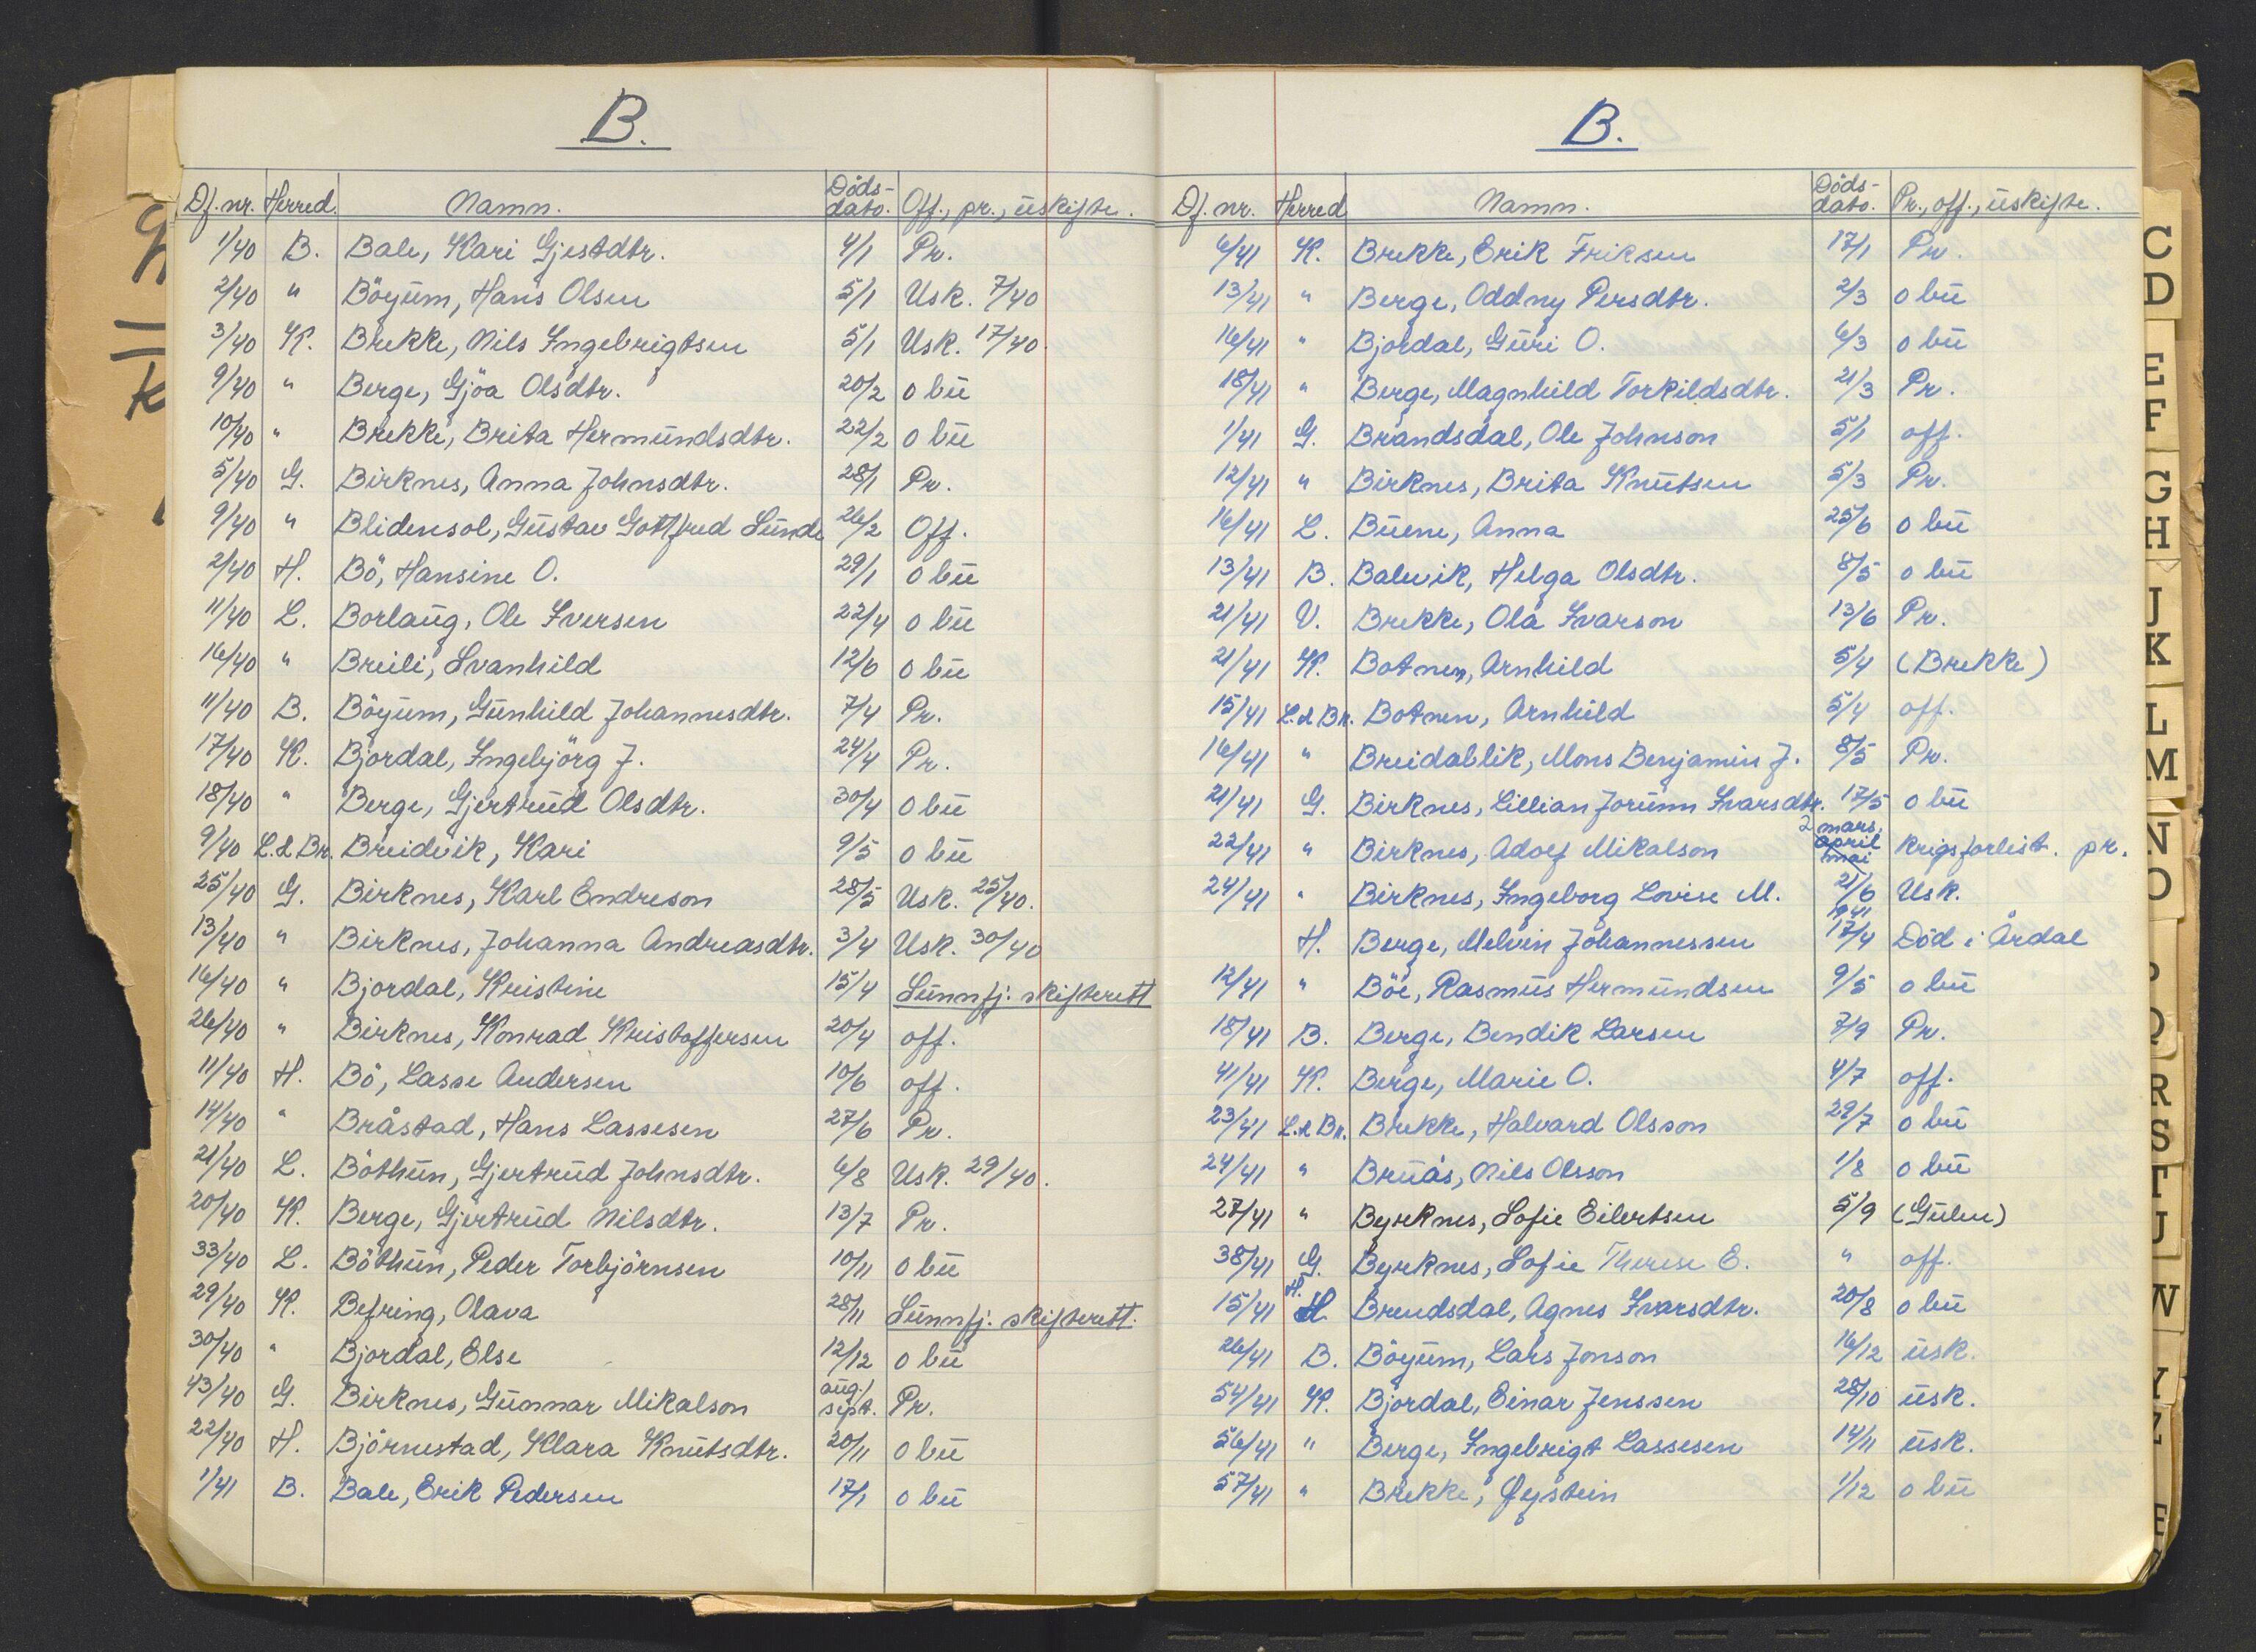 B.
Df. nr. Herred. Namn. Döds-dato. Off., pr., uskifte.
1/40 B. Bale, Kari Gjestdtr. 4/1 Pr.
2/40 " Böyum, Hans Olsen 5/1 Usk. 7/40
3/40 K. Brekke, Nils Ingebrigtsen 5/1 Usk. 17/40.
9/40 " Berge, Gjöa Olsdtr. 20/2 o bu
10/40 " Brekke, Brita Hermundsdtr. 22/2 o bu
5/40 G. Birknes, Anna Johnsdtr. 28/1 Pr.
9/40 " Blidensol, Gustav Gottfred Sunde 26/2 Off.
2/40 H. Bö, Hansine O. 29/1 o bu
11/40 L. Borlaug, Ole Iversen 22/4 o bu
16/40 " Breili, Svanhild 12/6 o bu
11/40 B. Böyum, Gunhild Johannesdtr. 7/4 Pr.
17/40 K. Bjordal, Ingebjörg J. 24/4 Pr.
18/40 " Berge, Gjertrud Olsdtr. 30/4 o bu
9/40 L.&Br. Breidvik, Kari 9/5 o bu
25/40 G. Birknes, Karl Endreson 28/5 Usk. 25/40.
13/40 " Birknes, Johanna Andreasdtr. 3/4 Usk. 30/40
16/40 " Bjordal, Kristine 15/4 Sunnfj. skifterett
26/40 " Birknes, Konrad Kristoffersen 20/4 off.
11/40 H. Bö, Lasse Andersen 10/6 off.
14/40 " Bråstad, Hans Lassesen 27/6 Pr.
21/40 L. Böthun, Gjertrud Johnsdtr. 6/8 Usk. 29/40.
20/40 K. Berge, Gjertrud Nilsdtr. 13/7 Pr.
33/40 L. Böthun, Peder Torbjörnsen 10/11 o bu
29/40 K. Befring, Olava 28/11 Sunnfj. skifterett.
30/40 " Bjordal, Else 12/12 o bu
43/40 G. Birknes, Gunnar Mikalson aug./sept. Pr.
22/40 H. Björnestad, Klara Knutsdtr. 20/11 o bu
1/41 B. Bale, Erik Pedersen 17/1 o bu
B.
Df. nr. Herred Namn. Döds-dato. Pr., off., uskifte.
6/41 K. Brekke, Erik Eriksen 17/1 Pr.
13/41 " Berge, Oddny Persdtr. 2/3 o bu
16/41 " Bjordal, Guri O. 6/3 o bu
18/41 " Berge, Magnhild Torkildsdtr. 21/3 Pr.
1/41 G. Brandsdal, Ole Johnson 5/1 off.
12/41 " Birknes, Brita Knutsen 5/3 Pr.
16/41 L. Buene, Anna 25/6 o bu
13/41 B. Balevik, Helga Olsdtr. 8/5 o bu
21/41 V. Brekke, Ola Ivarson 13/6 Pr.
21/41 K. Botnen, Arnhild 5/4 (Brekke)
15/41 L.&Br. Botnen, Arnhild 5/4 off.
16/41 " Breidablik, Mons Benjamin J. 8/5 Pr.
21/41 G. Birknes, Lillian Jorunn Ivarsdtr. 17/5 o bu
22/41 " Birknes, Adolf Mikalson 2 mars, april mai Krigsforlist. pr.
24/41 " Birknes, Ingeborg Lovise M. 21/6 1941 Usk.
H. Berge, Melvin Johannessen 17/4 Död i Årdal
12/41 " Böe, Rasmus Hermundsen 9/5 o bu
18/41 B. Berge, Bendik Larsen 7/9 Pr.
41/41 K. Berge, Marie O. 4/7 off.
23/41 L.&Br. Brekke, Halvard Olsson 29/7 o bu
24/41 " Bruås, Nils Olsson 1/8 o bu
27/41 " Byrknes, Sofie Eilertsen 5/9 (Gulen)
38/41 G. Byrknes, Sofie Therese E. " off.
15/41 H. Brendsdal, Agnes Ivarsdtr. 20/8 o bu
26/41 B. Böyum, Lars Jonson 16/12 usk.
54/41 K. Bjordal, Einar Jenssen 28/10 usk.
56/41 " Berge, Ingebrigt Lassesen 14/11 usk.
57/41 " Brekke, Øystein 1/12 o bu
C
D
E
F
G
H
J
K
L
M
N
O
Q
R
S